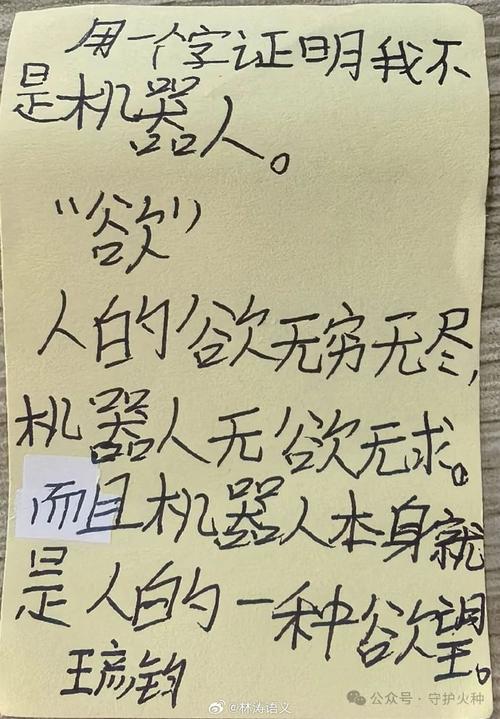 用一个字证明我不
是机器人。
“欲”
人的欲无穷无尽，
机器人无欲无求。
而且机器人本身就
是人的一种欲望。
王彦钧
公众号·守护火种
@林涛语义